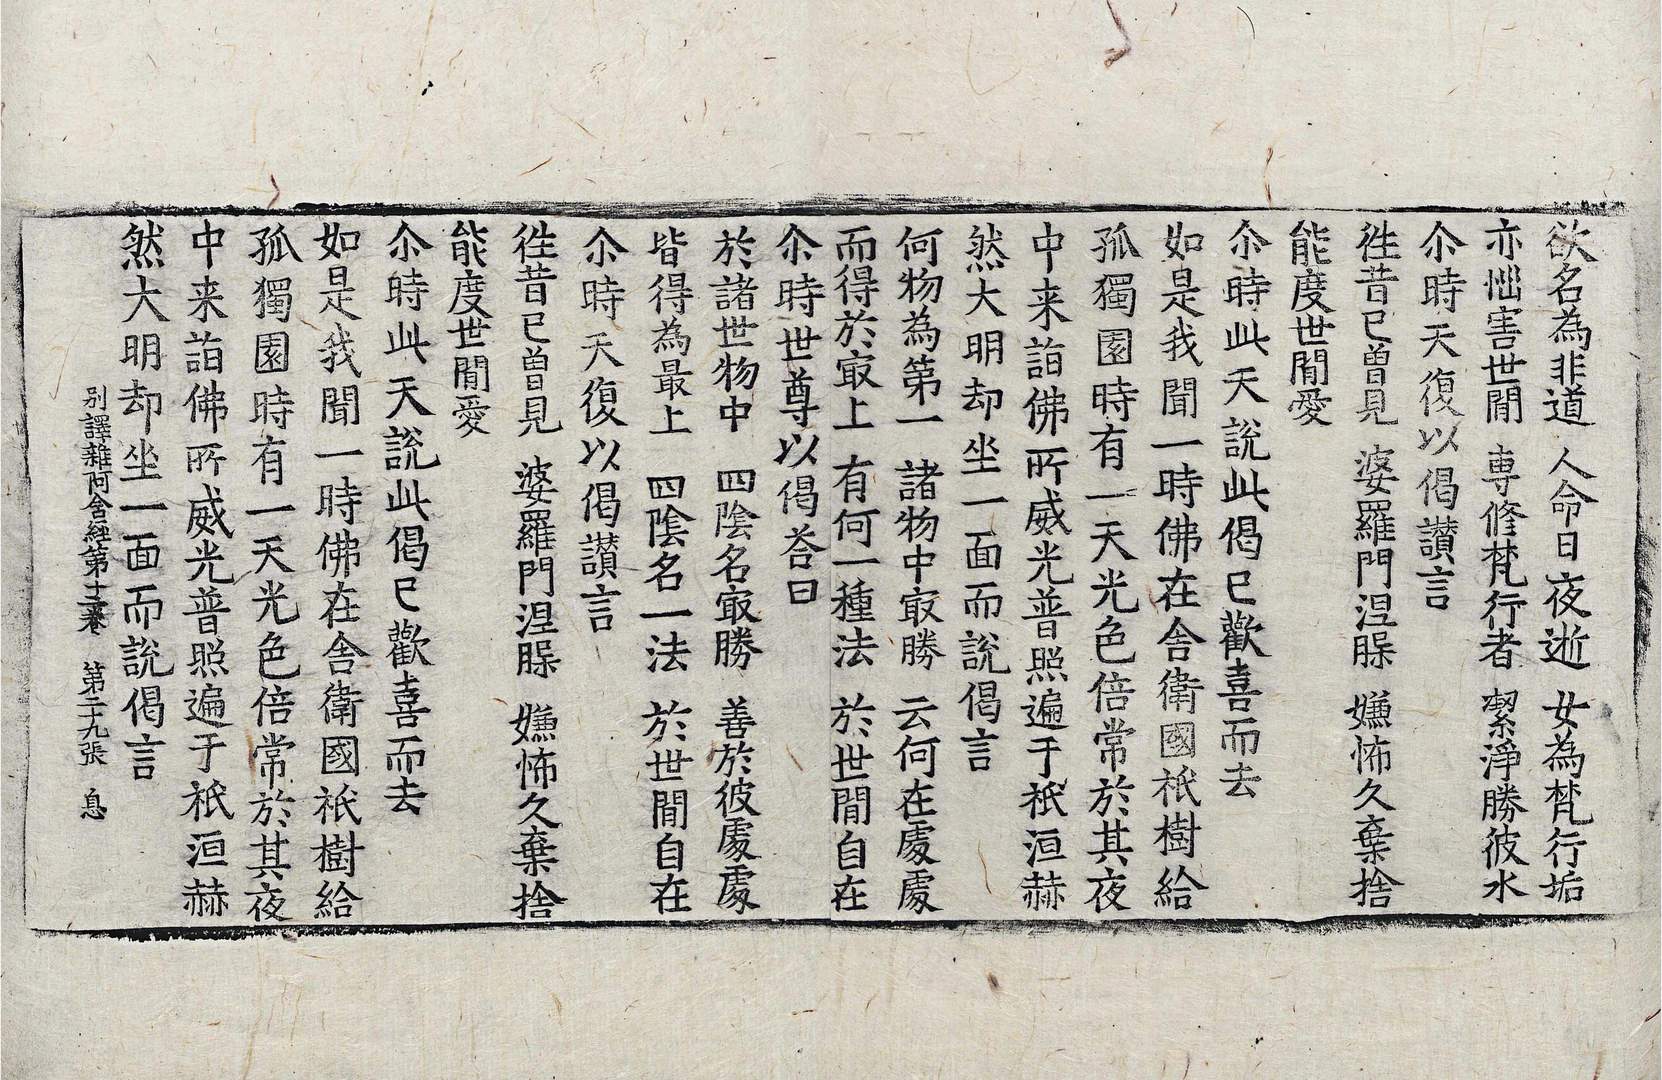 欲名為非道 人命日夜逝 女為梵行垢
亦惱害世閒 專修梵行者 潔淨勝彼水
尒時天復以偈讃言
徃昔已曾見 婆羅門涅䐗 嫌怖久棄捨
能度世閒愛
尒時此天說此偈已歡喜而去
如是我聞一時佛在舎衛國祇樹給
孤獨園時有一天光色倍常於其夜
中来詣佛所威光普照遍于祇洹赫
然大明却坐一面而說偈言
何物為第一 諸物中㝡勝 云何在處處
而得於㝡上 有何一種法 於世間自在
尒時世尊以偈荅曰
於諸世物中 四陰名㝡勝 善於彼處處
皆得為最上 四陰名一法 於世間自在
尒時天復以偈讃言
徃昔已曾見 婆羅門涅䐗 嫌怖久棄捨
能度世閒愛
尒時此天說此偈已歡喜而去
如是我聞一時佛在舎衛國祇樹給
孤獨園時有一天光色倍常於其夜
中来詣佛所威光普照遍于祇洹赫
然大明却坐一面而說偈言
別譯雜阿含經第十二卷 第二九張 息